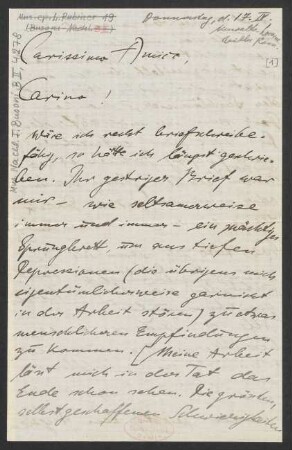 Mus. ep. L. Rubiner 19
(Busoni-Nachl. B II)
Mus. Nachl. F. Busoni B II, 4278
Donnerstag, d. 17.
[1]
Carissimo Amico,
Carino!
Wäre ich recht briefschreibe-
fähig, so hätte ich längst geschrie-
ben. Ihr gestriger Brief war
mir – wie seltsamerweise
immer und immer – ein mächtiges
Sprungbrett, um aus tiefen
Depressionen (die übrigens mich
eigentümlicherweise garnicht
in der Arbeit stören) zu etwas
menschlicheren Empfindungen
zu kommen. [Meine Arbeit
lässt mich in der Tat das
Ende schon sehen. Die grössten,
selbstgeschaffenen Schwierigkeiten